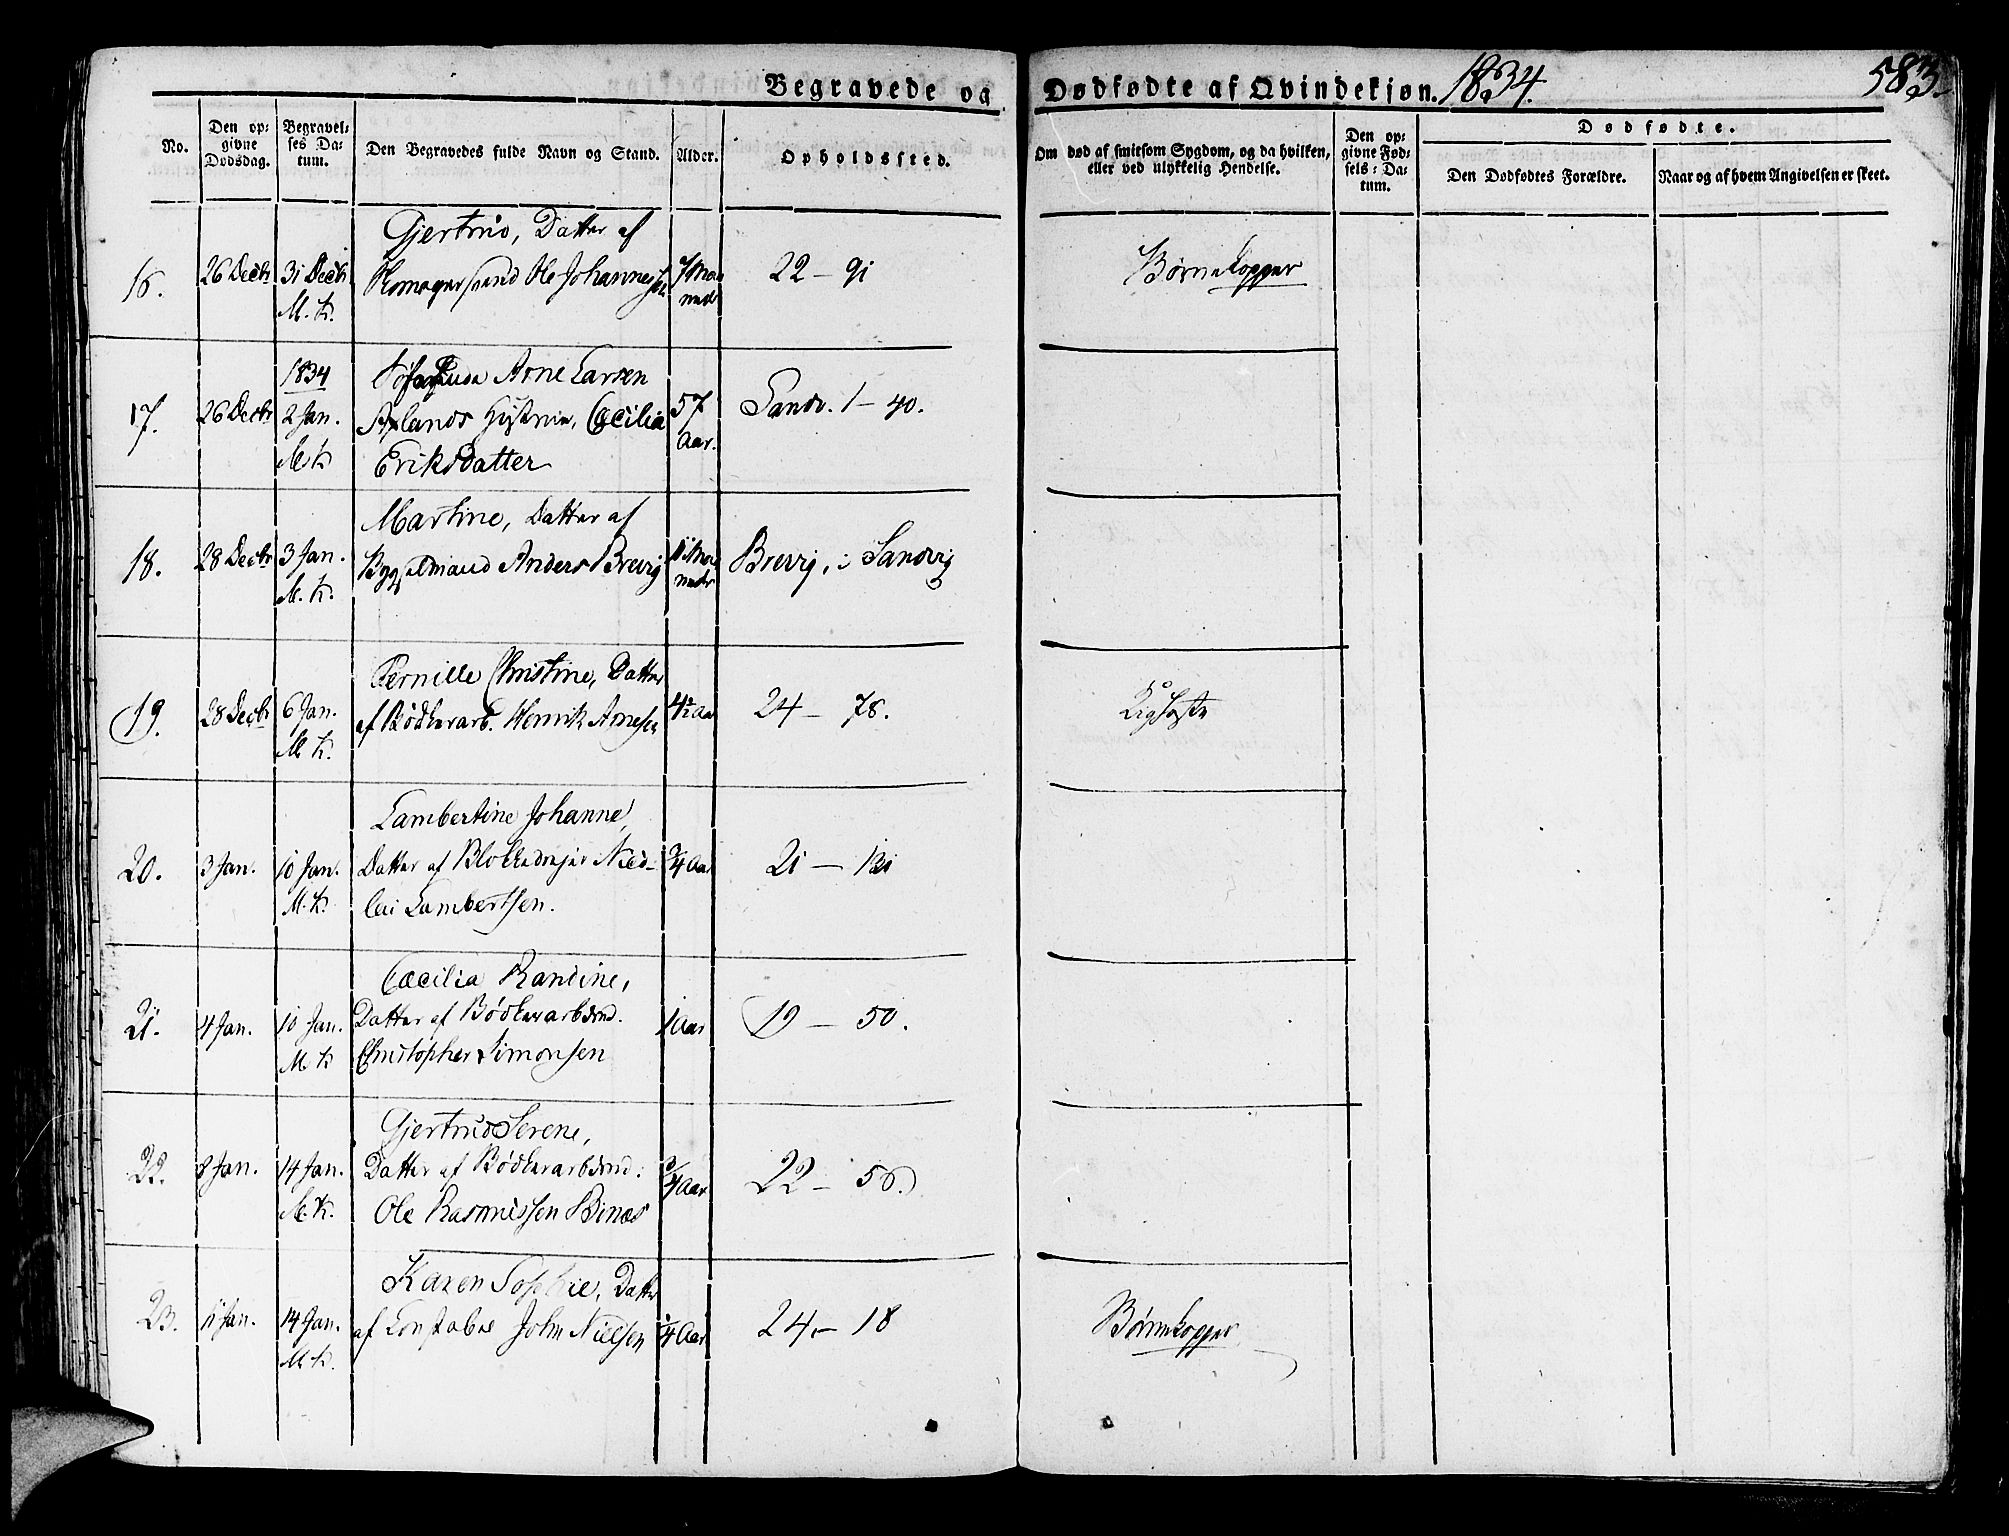 Begravede og Dødfødte af Qvindekjøn. 1834. 583
No.
Den op-
givne
Dødsdag.
Begravel-
ses Da-
tum.
Den Begravedes fulde Navn og Stand.
Alder.
Opholdssted.
Om død af smitsom Sygdom, og da hvilken,
eller ved ulykkelig Hendelse.
Den op-
givne Fød-
sels-Da-
tum.
Dødfødte.
Den Dødfødtes Forældre.
Naar og af hvem Angivelsen er skeet.
Gjertrud, Datter af
16. 26 Decbr 31 Decbr Ole Johannesen 7 Maa 22 – 91 Børnekopper
M. K. neder
1834
Arne Larsen
17. 26 Decbr 2 Jan. Hustrue, Cæcilia 57 Sandv. 1 – 40.
M. K. Eriksdatter Aar.
Martine, Datter af
18. 28 Decbr 3 Jan. Bygselmand Anders Brevig 11 Maa Brevig, i Sandvig
M. K. neder
Pernille Christine, Datter
19. 28 Decbr 6 Jan. af Bødkerarb. Henrik Arnesen 4½ Aar 24 – 78. Kighoste
M. K.
Lambertine Johanne,
20. 3 Jan. 10 Jan. Datter af Blokkedreier Nico- ¾ Aar 21 – 131
M. K. lai Lambertsen.
Cæcilia Randine,
21. 4 Jan. 10 Jan. Datter af Bødkerarbdmd. 1 Aar 19 – 50.
M. K. Christopher Simonsen
Gjertrud Serene,
22. 8 Jan. 14 Jan. Datter af Bødkerarbdmd: ¾ Aar 22 – 56.
M. K. Ole Rasmussen
Karen Sophie, Datter
23. 11 Jan. 14 Jan. af Constabel John Nielsen ¼ Aar 24 – 18 Børnekopper
M. K.